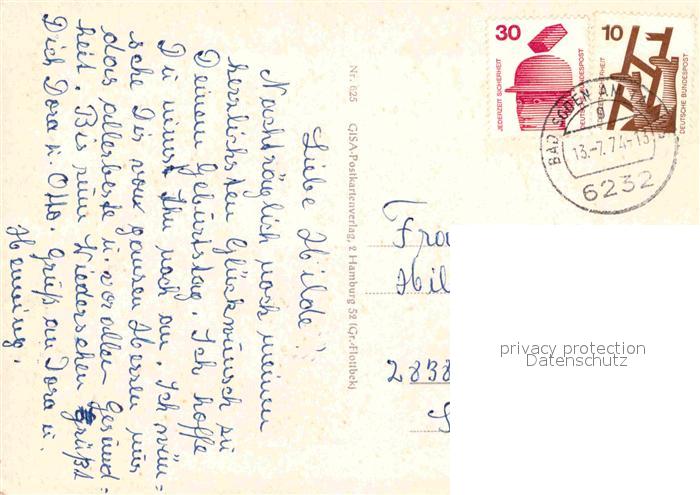 Liebe Hilde!
Nachträglich noch meinen
herzlichsten Glückwunsch zu
Deinem Geburtstag. Ich hoffe
Du nimmst ihn noch an. Ich wün=
sche Dir von ganzen Herzen nur
das allerbeste u. vor allen Gesund=
heit. Bis zum Wiedersehen grüßt
Dich Dora u. Otto. Gruß an Dora u.
Henning.
Nr. 625 GISA-Postkartenverlag, 2 Hamburg 52 (Gr.-Flottbek)
30
JEDERZEIT SICHERHEIT
DEUTSCHE BUNDESPOST
10
DEUTSCHE BUNDESPOST
BAD SODEN AM
13.-7.74-13
6232
Frau
Hil
2838
privacy protection
Datenschutz